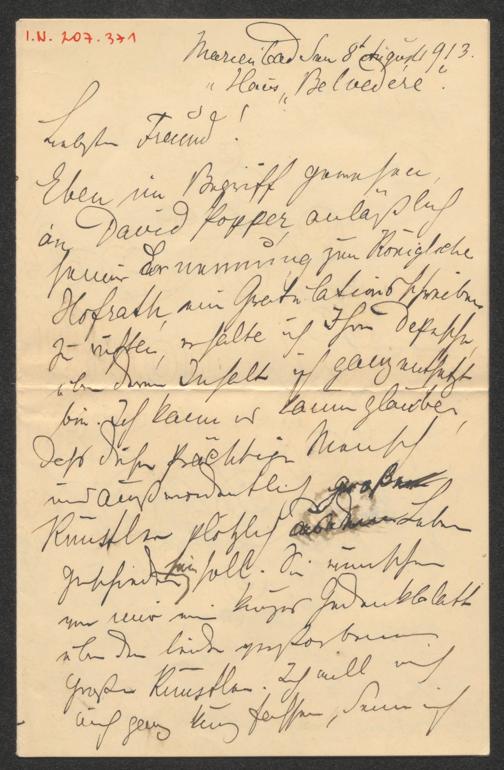 I.N. 207.371
Marienbad den 8t August 1913.
"Haus "Belvedere".
Liebster Freund!
Eben im Begriff gewesen,
an David Popper, anläßlich
seiner Ernennung zum Königlichen
Hofrath, ein Gratulationsschreiben
zu richten, erhalte ich Ihre Depesche,
über deren Inhalt ich ganz entsetzt
bin. Ich kann es kaum glauben,
daß dieser prächtige Mensch
und außerordentlich große
Künstler plötzlich aus dem Leben
geschieden sein soll. Sie wünschen
von mir ein kurzes Gedenkblatt
über den leider verstorbenen
großen Künstler. Ich will mich
auch ganz kurz fassen, denn ich